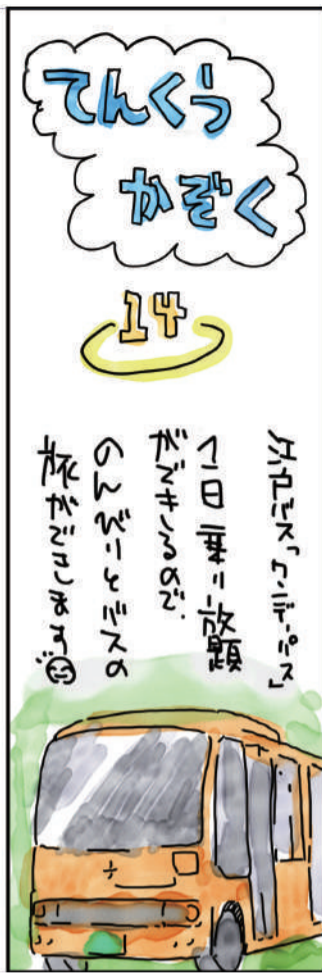 てんくう
かぞく
14
江戸バス「ワンデーパス」
1日乗り放題
ができるので、
のんびりとバスの
旅ができます